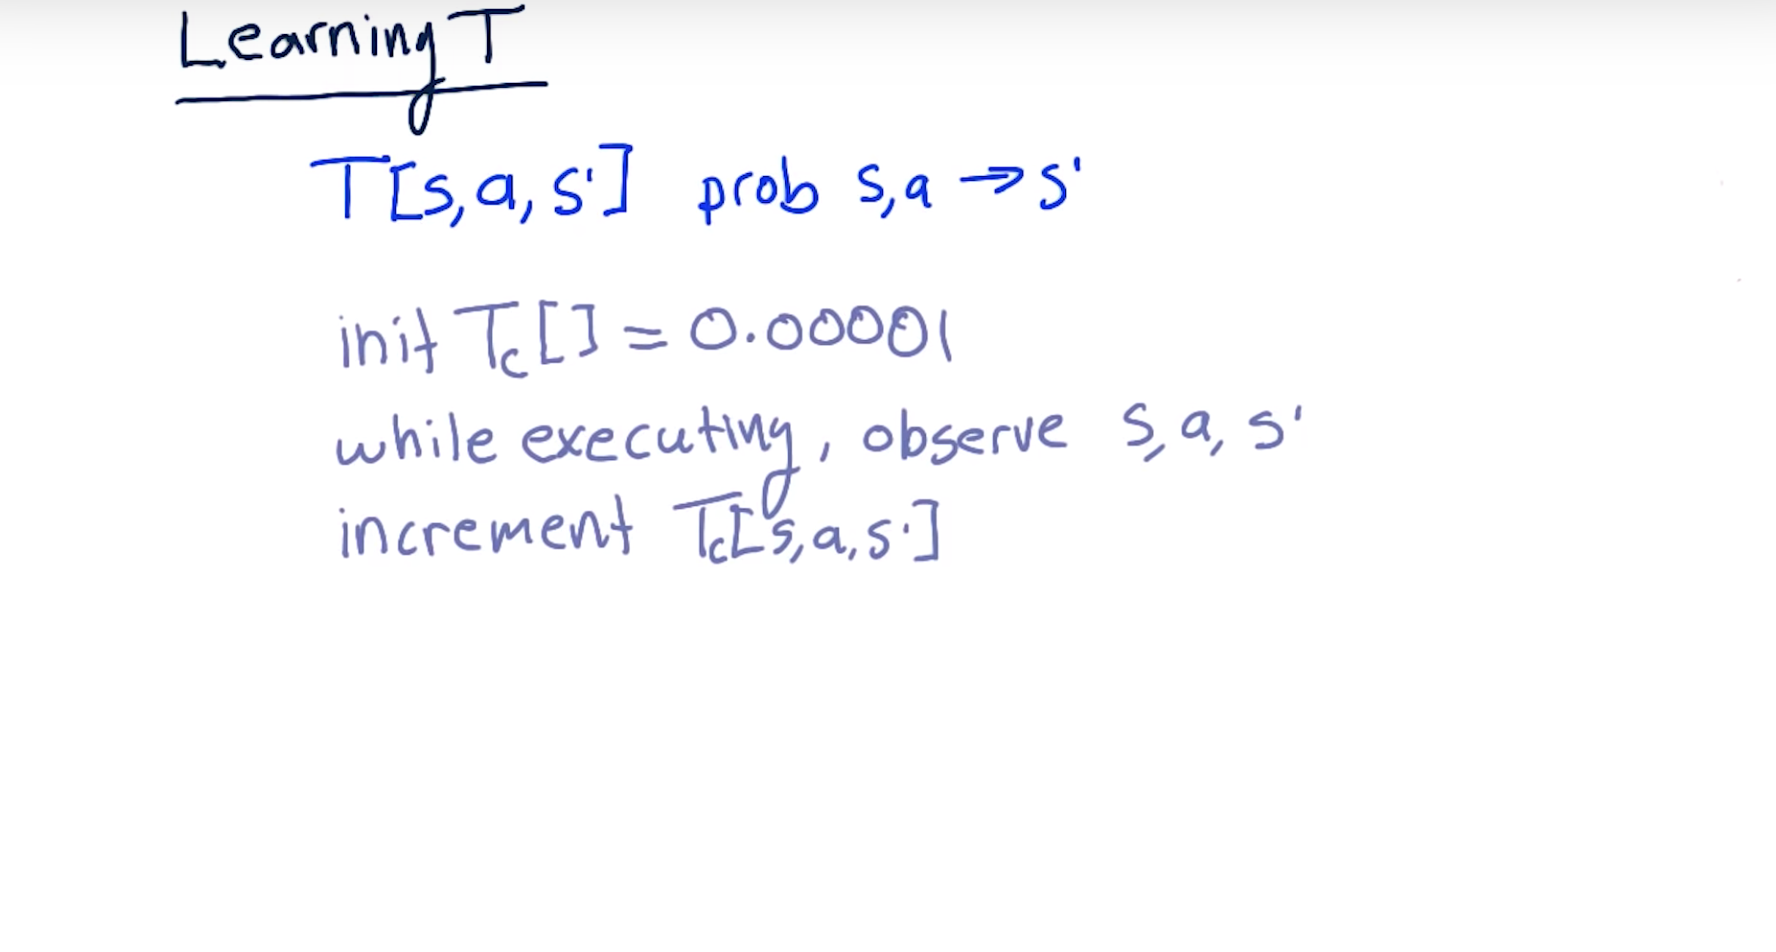 Learning T
T[s,a,s'] prob s,a → s'
init Tc[] = 0.00001
while executing, observe s, a, s'
increment Tc[s,a,s']